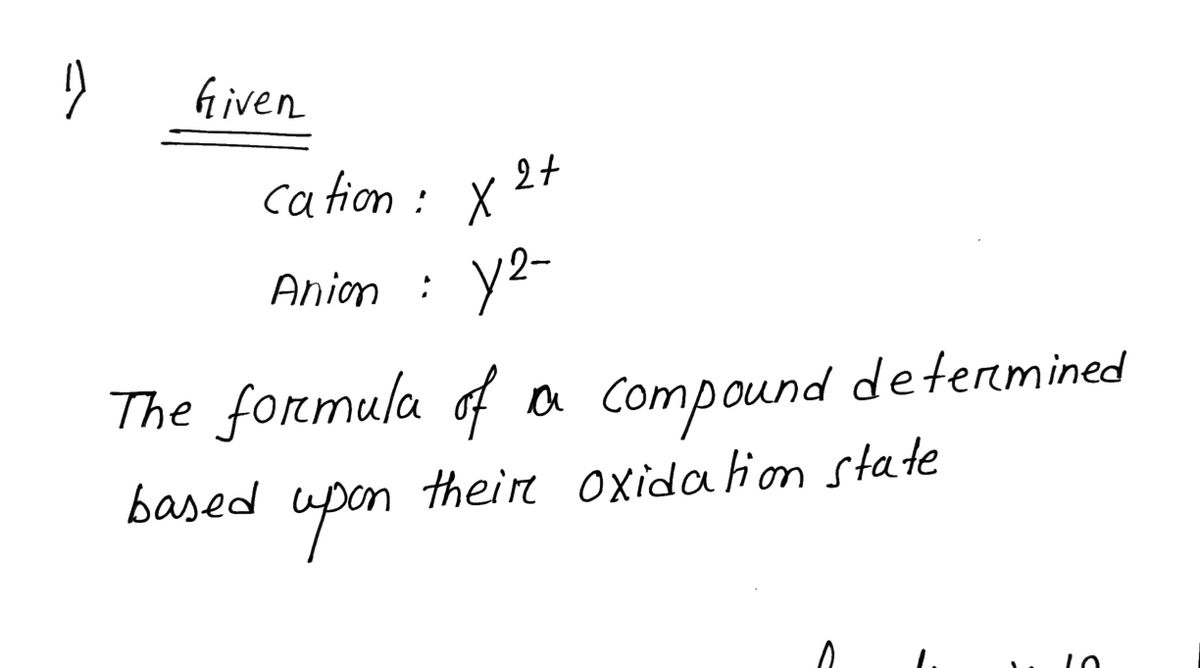 1) Given
Cation : X 2+
Anion : Y2-
The formula of a compound determined
based upon their oxidation state